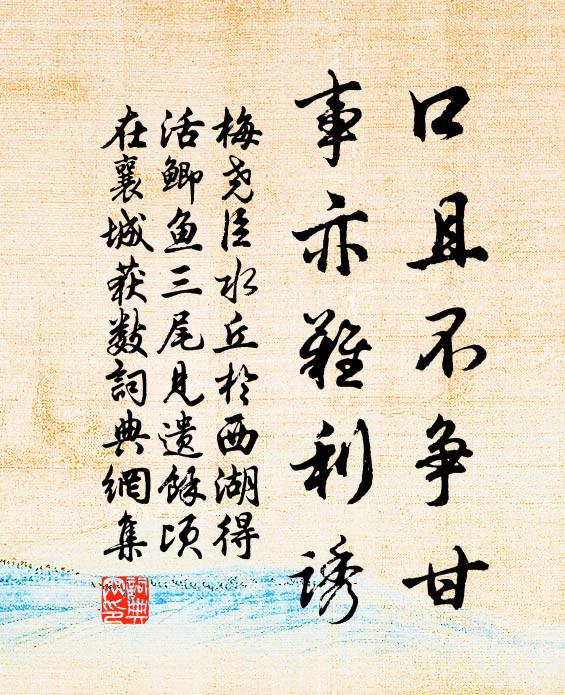 口且不争甘
事亦难利诱
梅尧臣水丘於西湖得
活鲫鱼三尾见遗馀顷
在襄城获数詞典網集